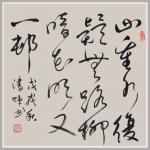 山重水復
疑無路柳
暗花明又
一邨
戊戌秋